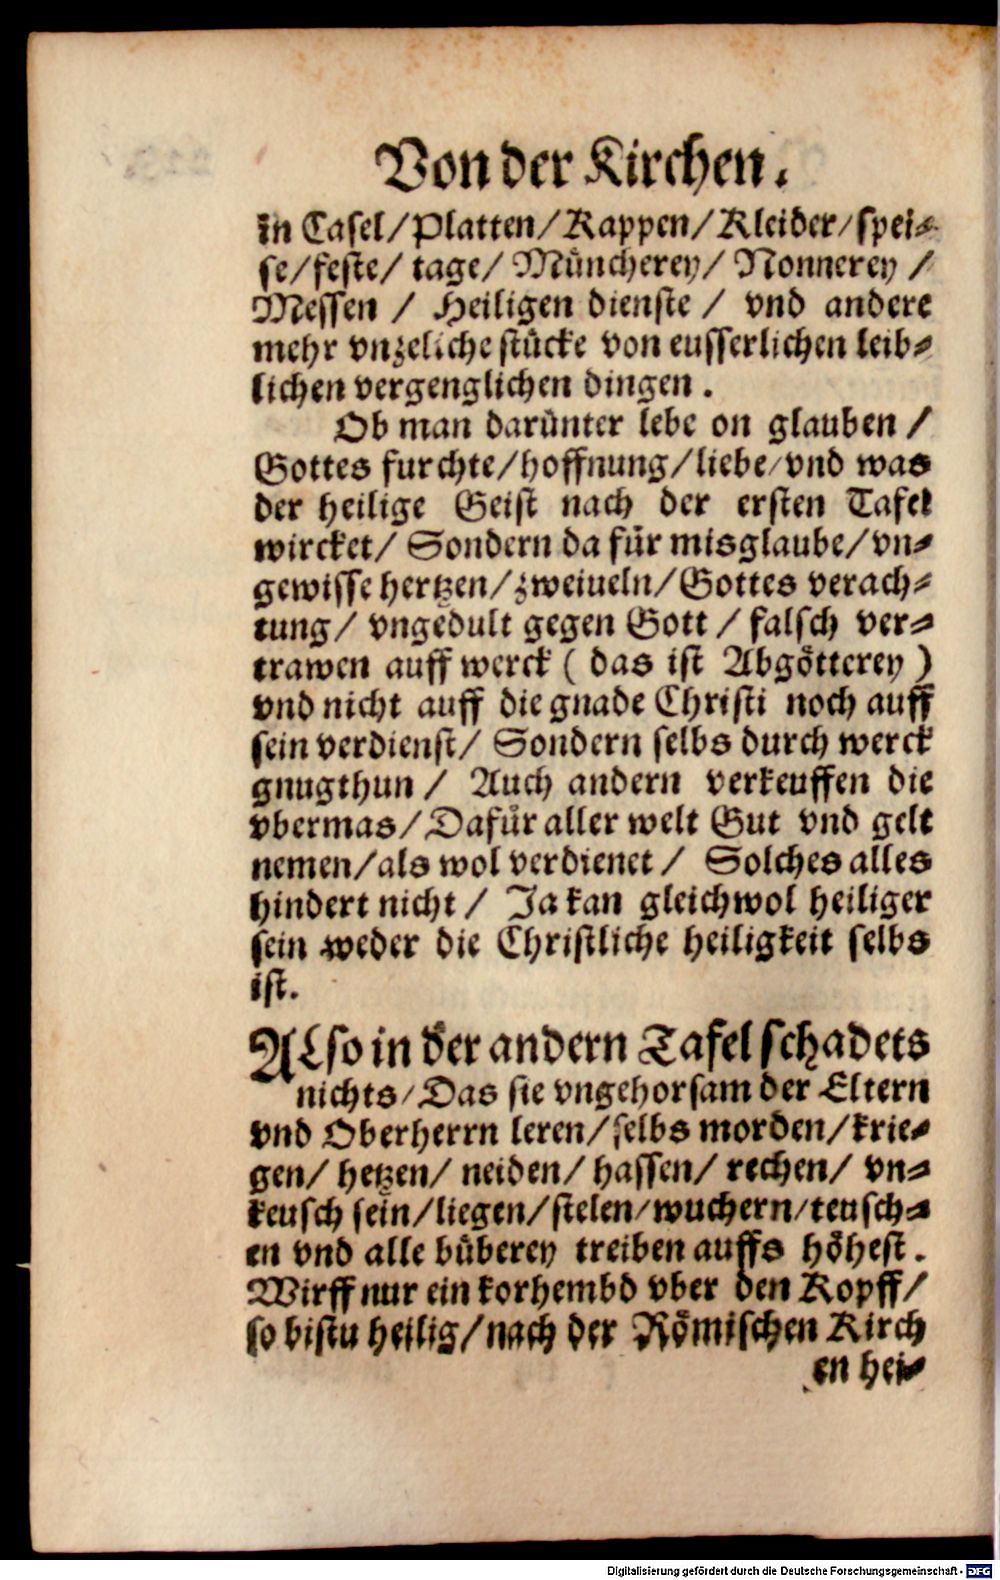 Von der Kirchen.
in Casel/Platten/Kappen/Kleider/spei⸗
se/feste/ tage/ Müncherey/ Nonnerey /
Messen / Heiligen dienste / vnd andere
mehr vnzeliche stücke von eusserlichen leib⸗
lichen vergenglichen dingen .
Ob man darünter lebe on glauben /
Gottes furchte/hoffnung/liebe/vnd was
der heilige Geist nach der ersten Tafel
wircket/ Sondern da für misglaube/vn⸗
gewisse hertzen/zweiueln/Gottes verach⸗
tung/ vngedult gegen Gott / falsch ver⸗
trawen auff werck ( das ist Abgötterey )
vnd nicht auff die gnade Christi noch auff
sein verdienst/ Sondern selbs durch werck
gnugthun / Auch andern verkeuffen die
vbermas/Dafür aller welt Gut vnd gelt
nemen/als wol verdienet / Solches alles
hindert nicht / Ja kan gleichwol heiliger
sein weder die Christliche heiligkeit selbs
ist.
ALso in der andern Tafel schadets
nichts/Das sie vngehorsam der Eltern
vnd Oberherrn leren/selbs morden/krie⸗
gen/ hetzen/ neiden/ hassen/ rechen/ vn⸗
keusch sein/liegen/stelen/wuchern/teusch⸗
en vnd alle büberey treiben auffs höhest .
Wirff nur ein korhembd vber den Kopff/
so bistu heilig/nach der Römischen Kirch
en hei⸗
Digitalisierung gefördert durch die Deutsche Forschungsgemeinschaft - DFG